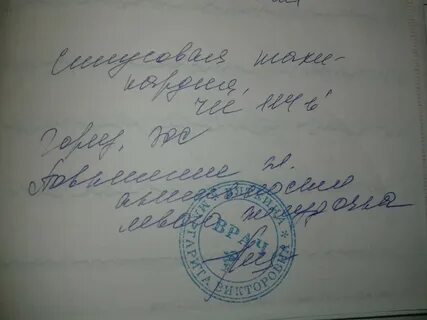 синусовая тахи-
кардия,
ЧСС 114 в'
Гориз. ЭОС
Повышение эл.
активности
левого желудочка
ВРАЧ
МАРГАРИТА ВИКТОРОВНА